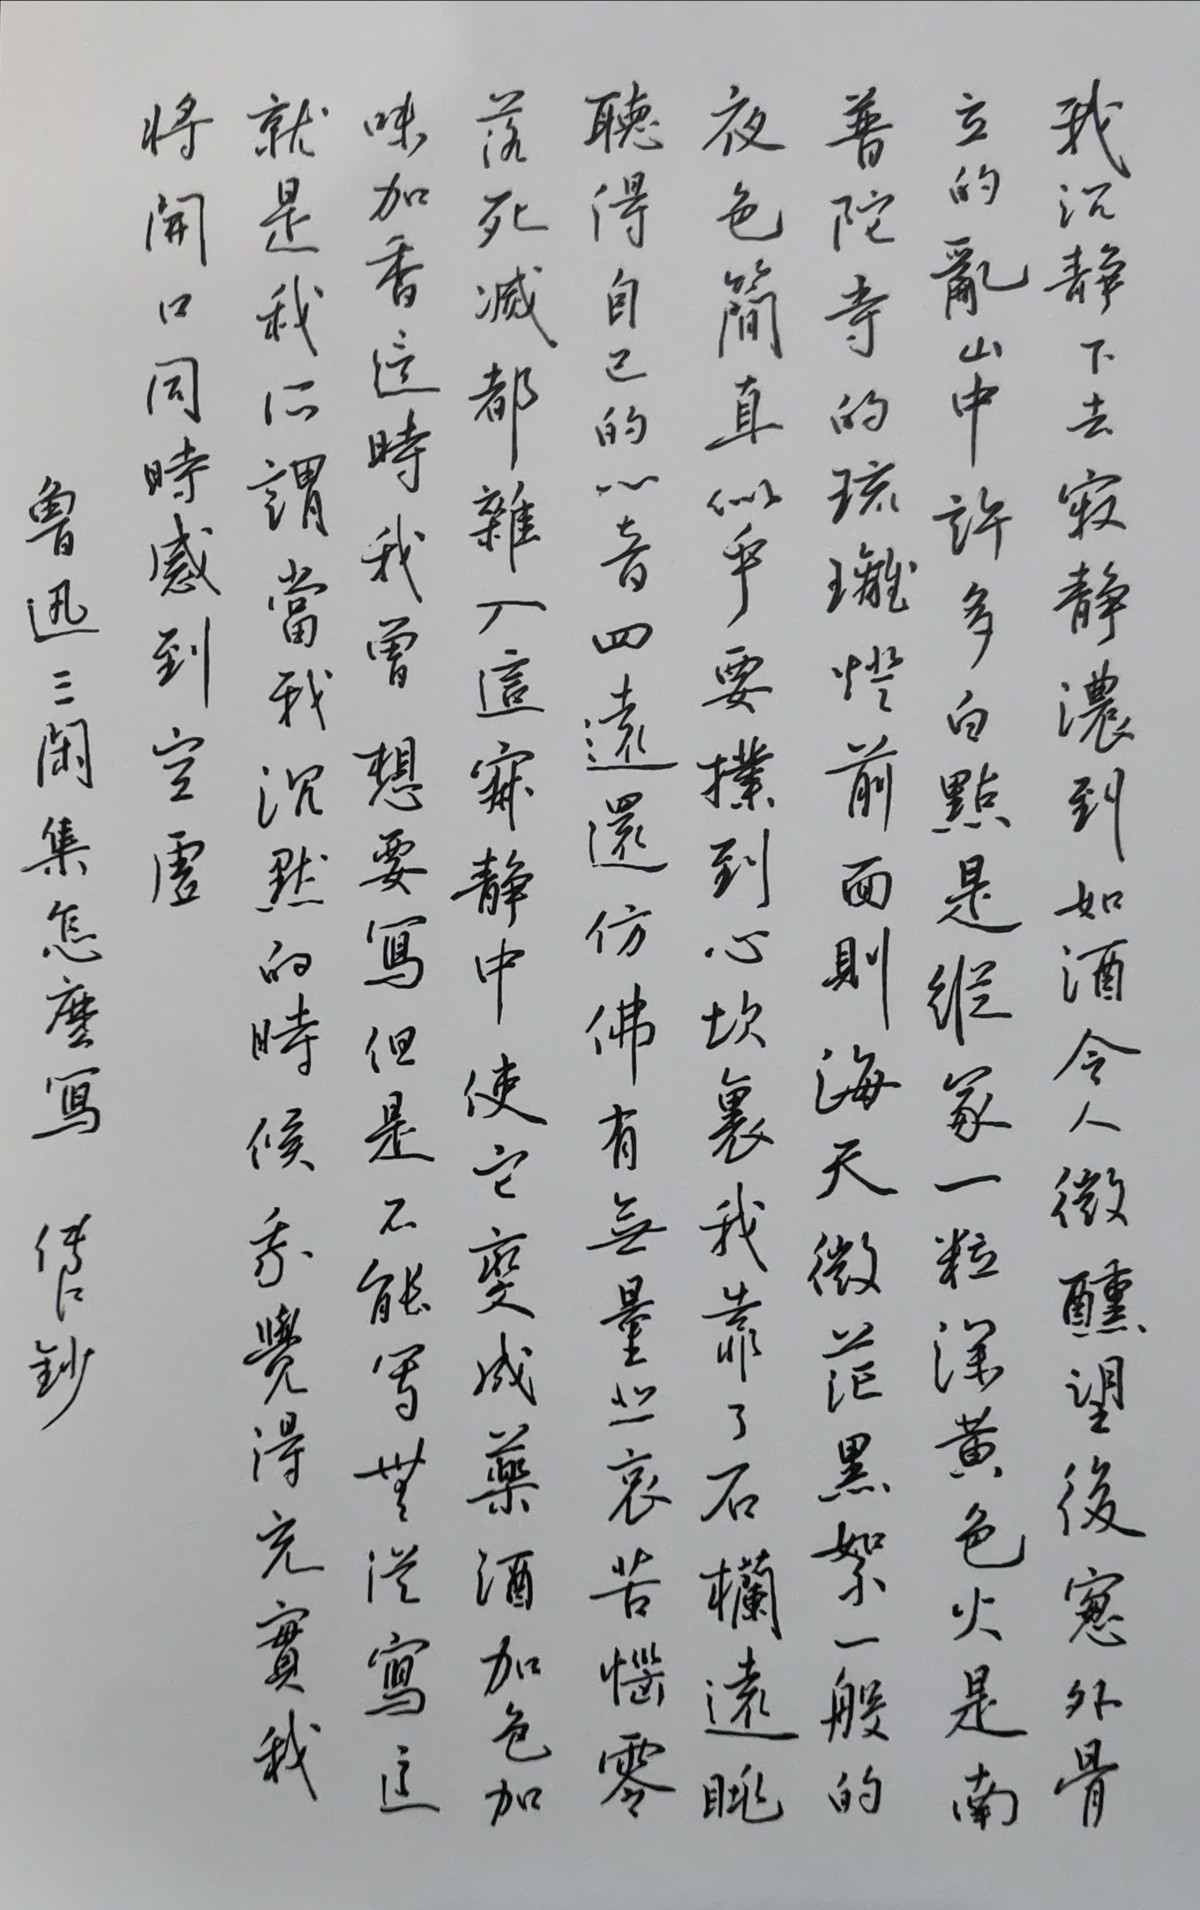 我沉静下去寂静濃到如酒令人微醺望後窓外骨
立的亂山中許多白點是縱冢一粒深黄色火是南
普陀寺的琉璃燈前面則海天微茫黑絮一般的
夜色簡直似乎要撲到心坎裏我靠了石欄遠眺
聽得自己的心音四遠還仿佛有無量悲哀苦惱零
落死滅都雜入這寂静中使它變成藥酒加色加
味加香這時我曾想要寫但是不能写無從寫這
就是我所謂當我沉默的時候我覺得充實我
將開口同時感到空虚
魯迅三閑集怎麼寫 鈔